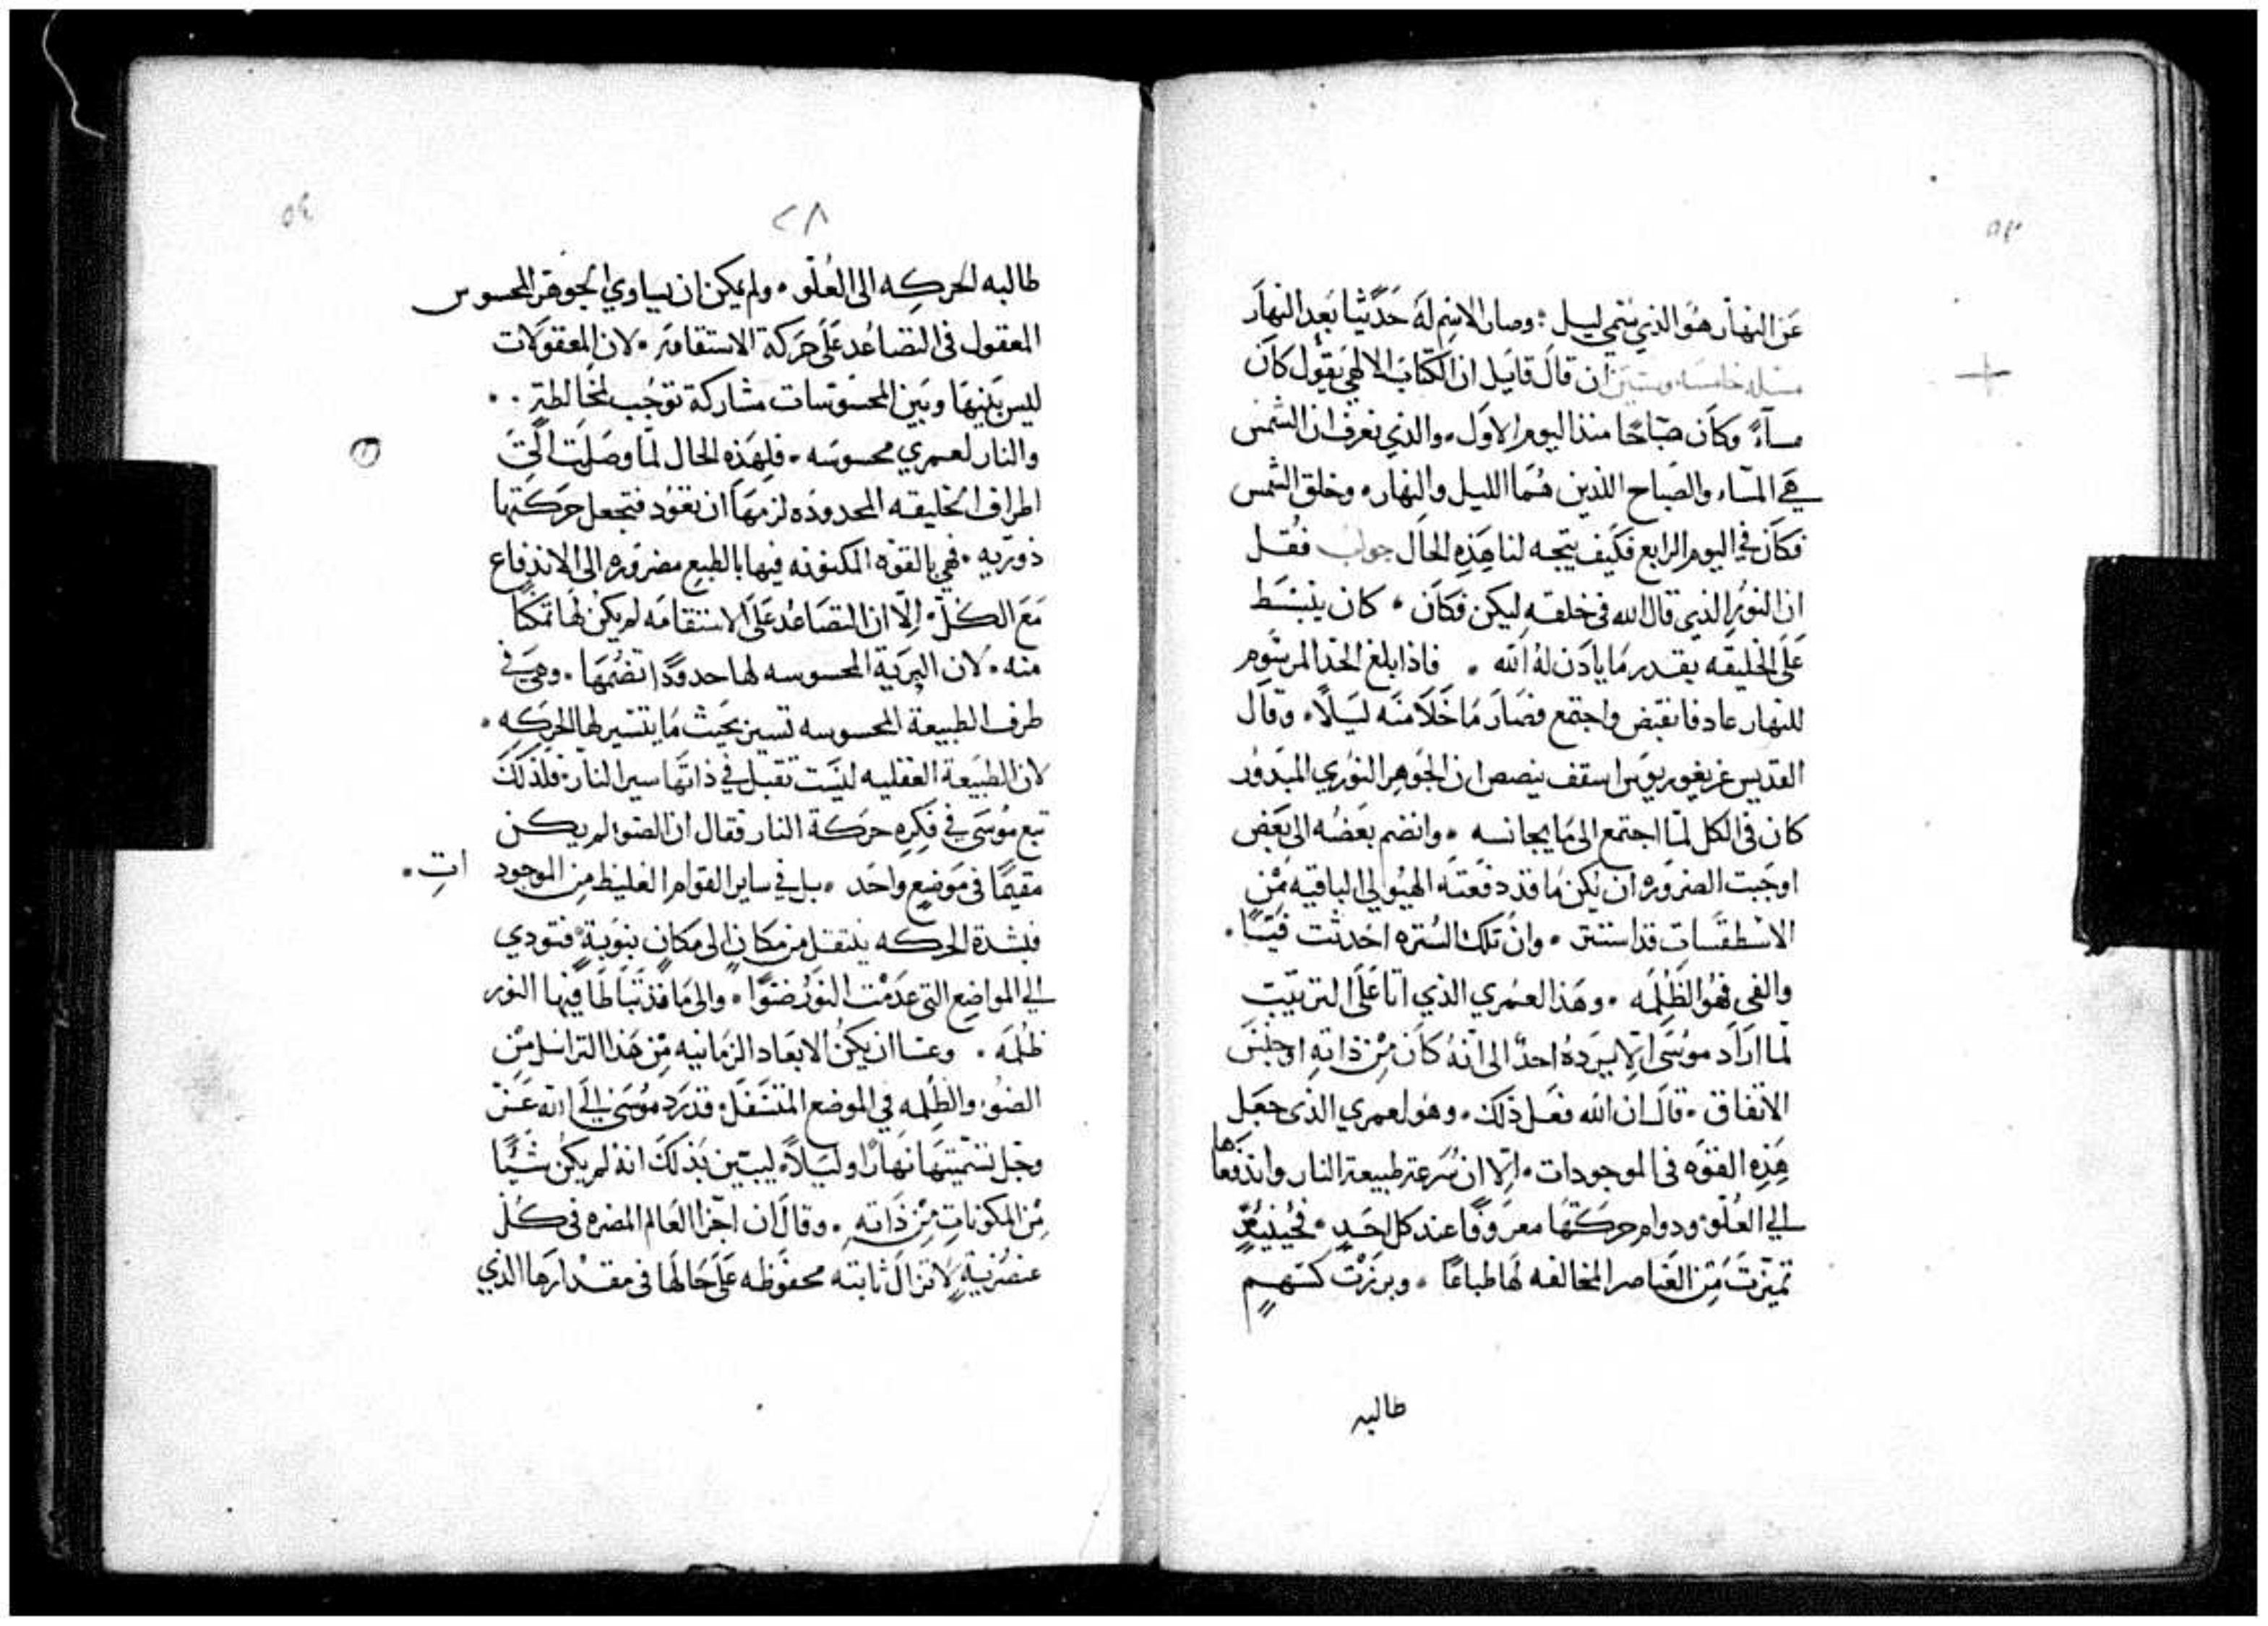 ٥٣
عَن النهاَر هُو الذي يَنتمي ليل ؛ وصار الاسِم لَهُ حَدَيثًا بَعِد النهَار
مسئله خامسه وستين ان قالَ قايَل ان الكتابَ الالهي يقوُل كاَن
مسآءً وكاَن صَبَاحًا منذ اليوم الاوَل . والذي نعرف ان الشمس
هَي المسَاء والصَباح اللذين هُمَا الليل والنهار . وخلق الشمس
فكاَن في اليوم الرابع فكَيف يتجه لنا هَذِهِ الحَال جواب فقُل
ان النوُر الذي قال الله في خلقهِ ليكن فكاَن . كان ينبسَط
عَلَى الخليقه بقدر مَا يادَن لهُ الله . فاذا بلغ الحدَ المرسُوم
للنهار عاد فانقبَض واجتمع فصَارَ مَا خَلاَ منَه ليَلاً . وقاَل
القديس غريغوريوسَ اسقف نيصص ان الجوَهر النوُري المبدوُر
كان في الكل لمَا اجتمع الى مَا يجانسه . وانضم بعَضُه الى بعَض
اوجَبت الضروَره ان يكن مَا قد دفعَتَه الهيُولي الباقيه مِن
الاسْطقسَات قد استتر . وانَ تلك السُتره احَدثت فَيئًا .
والفي فهُو الظُلمَه . وهَذا لعمري الذي اتا عَلَى الترتيبَ
لما ارَاَد موُسَى الا يرَدهُ احدٌ الى انهُ كاَن مِن ذاتهِ او جنسَ
الاتفاق . قالَ ان الله فعَل ذلكَ . وهوُ لعمري الذي جعَل
هَذِهِ القوَه في الموجودات . اِلا ان سُرعة طبيعة النار واندفعَاها
الي العُلوّ ودوام حركتهَا معرَوفًا عند كل احَدٍ . فحُينيذٍ
تميّزتَ مِن العَناصر المخالفه لهَا طباعًا . وبرزتَ كسَهمٍ
طالبه
٥٤
٢٨
طالبه الحركِه الى العُلو . ولم يمكن ان يساوي الجوهَر المحسوس
المعقول في التصَاعُد عَلَى حَركة الاستقامَة . لان المعقوَلات
ليسَ بَينهَا وبَين المحسَوسَات مشاركة توجَب مخالطةٍ . .
والنار لعمري محسوسَه . فلهَذِهِ الحال لمَا وصَلتِ الَى
اطراف الخليقه المحدودَه لزمَها ان تعوُد فتجعل حَركَتها
دَورَيه . فهي بالقوَه المكنَونه فيها بالطبع مضرَوره الى الاندفاع
مَعَ الكلَ . اِلّا ان التصَاعُد عَلَى الاستقامَه لم يكنُ لهَا تمكنًا
منه . لان البرَية المحسوسه لها حدودًا تضُمهَا . وهَي في
طرف الطبيعة المحسوسه تسير بحَيث مَا يتسَير لها الحركِه .
لان الطبيَعة العقليه ليسَت تقبل في ذاتهَا سير النار . فلذلكَ
تبع موُسَى في فكَرِهِ حرَكَة النار فقال ان الضوء لم يكن
مقيمًا في مَوضِعٍ واحَد . بل في ساير القوام الغليظ مِن الموجودات .
فبشدة الحركه ينتقل من مكانٍ الى مكانٍ بنوبةٍ فتودي
الى المواضع التي عدَمت النوُر ضوًا . والى مَا قد تَبَاطَا فيها النور
ظلمَه . وعسَا ان يكنُ الابعَاد الزمَانيه مِن هَذا التراسُل مِن
الضوُء والظلمه في الموضع المتسَفل . قد رَد موُسَى الي الله عَز
وجَل تسَميتهَا نهَارًا وليَلاً . ليبَين بذلكَ انهُ لم يكنُ شيًا
مِن المكوناتِ مِن ذَاتهِ . وقالَ ان اجزا العَالم المضره في كلُ
عنصُريةٍ لا تزالَ ثابته محفوَظه عَلَى حَالهَا في مقدارَها الذي